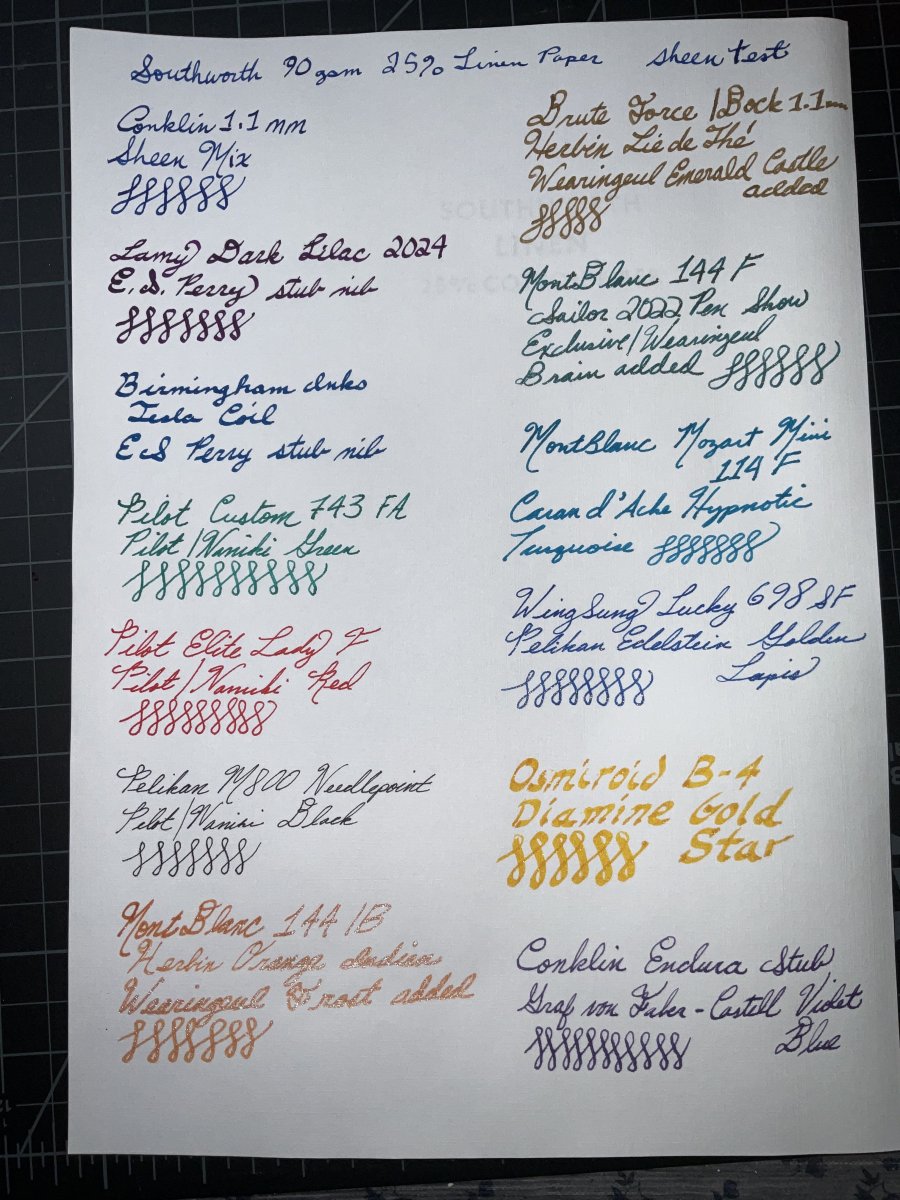 Southworth 90 gsm 25% Linen Paper sheen test
Conklin 1.1 mm
Sheen Mix
Lamy Dark Lilac 2024
E.S. Perry stub nib
Birmingham Inks
Tesla Coil
E.S Perry stub nib
Pilot Custom 743 FA
Pilot/Namiki Green
Pilot Elite Lady F
Pilot/Namiki Red
Pelikan M800 Needlepoint
Pilot/Namiki Black
MontBlanc 144 /B
Herbin Orange Indien
Wearingeul Frost added
Brute Force/Bock 1.1mm
Herbin Lié de Thé
Wearingeul Emerald Castle
added
SOUTHWORTH
LINEN
25% CO
MontBlanc 144 F
Sailor 2022 Pen Show
Exclusive/Wearingeul
Brain added
MontBlanc Mozart Mini
114 F
Caran d'Ache Hypnotic
Turquoise
WingSung Lucky 698 SF
Pelikan Edelstein Golden
Lapis
Osmiroid B-4
Diamine Gold
Star
Conklin Endura Stub
Graf von Faber-Castell Violet
Blue